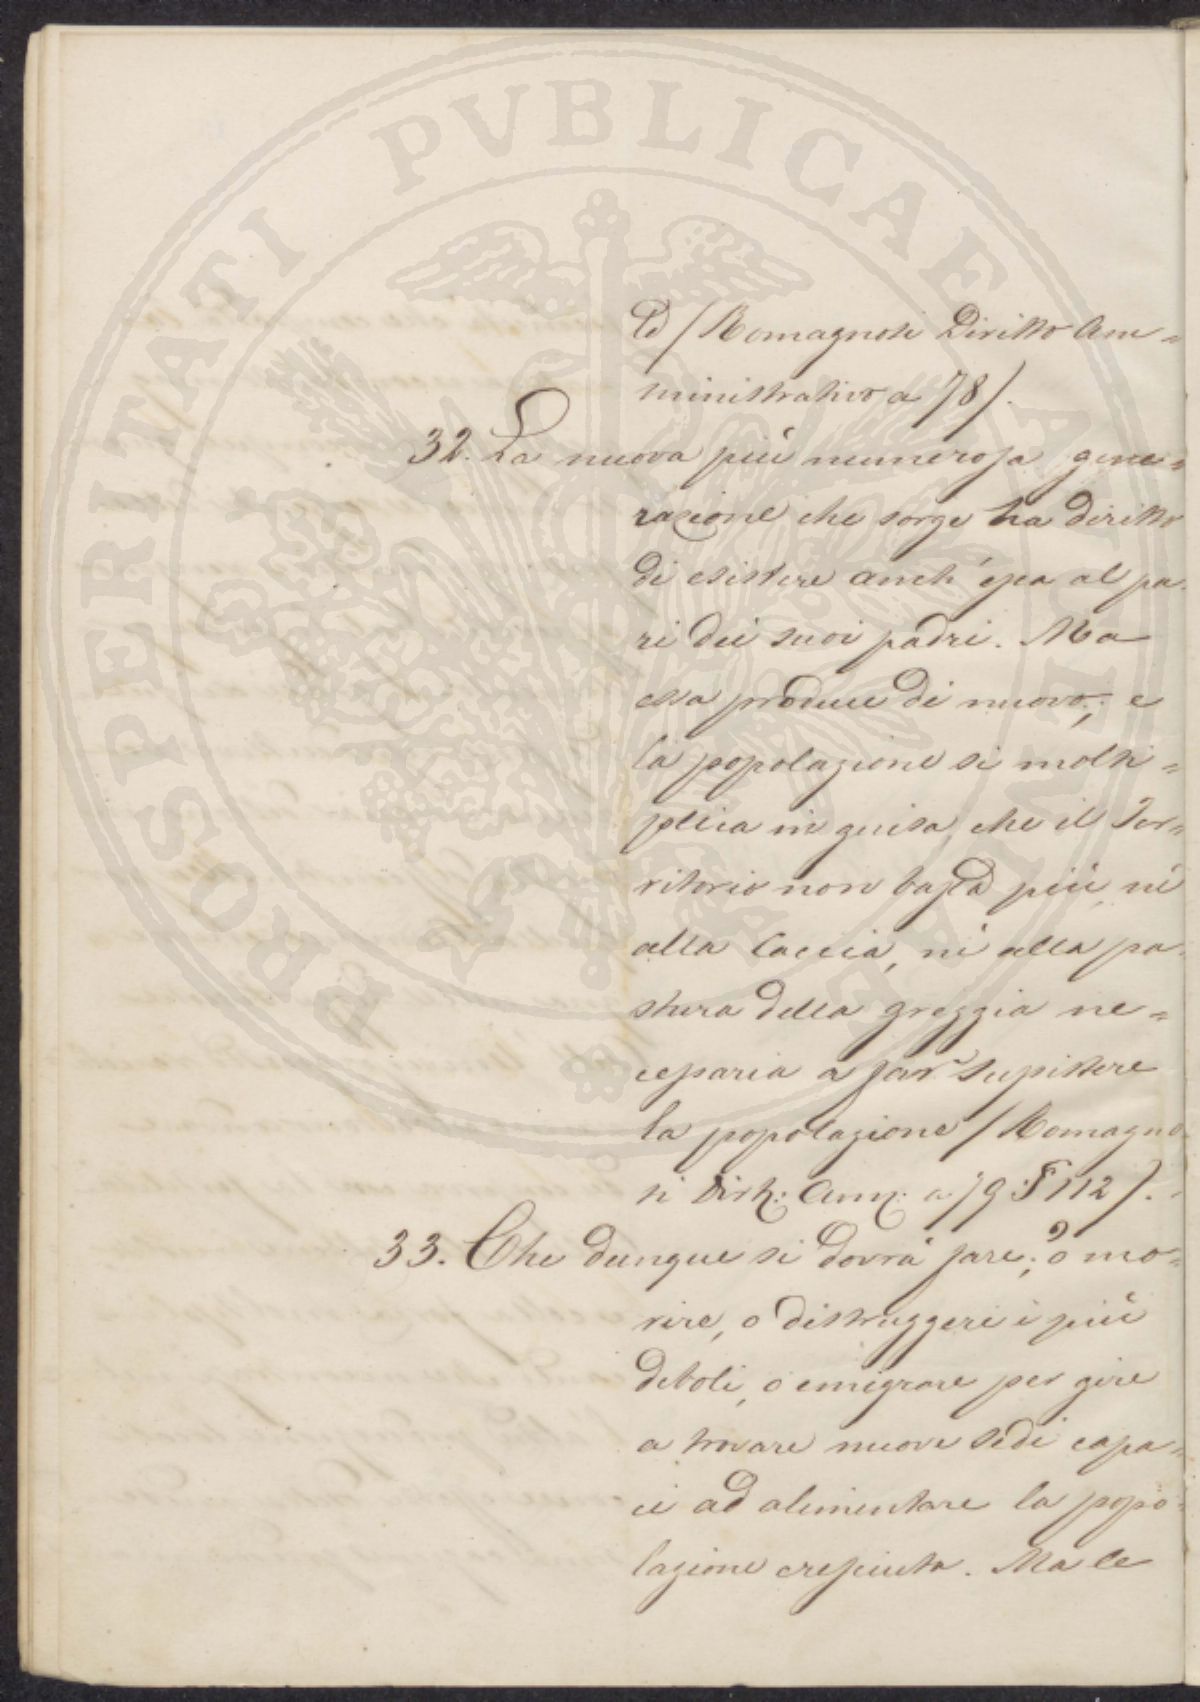 PROSPERITATI PVBLICAE AVGENDAE
/Romagnosi Diritto Am=
ministrativo a 78/.
32. La nuova più numerosa gene=
razione che sorge ha diritto
di esistere anch'essa al pa
ri dei suoi padri. Ma
essa produce di nuovo; e
la popolazione si molti=
plica in guisa che il Ter=
ritorio non basta più nè
alla Caccia, nè alla pa
stura della greggia ne=
cessaria a far sussistere
la popolazione /Romagno
si Dirit: Amm: a 79 § 112/.
33. Che dunque si dovrà fare; o mo=
rire, o distruggere i più
deboli, o emigrare per gire
a trovare nuove sedi capa=
ci ad alimentare la popo
lazione cresciuta. Ma le